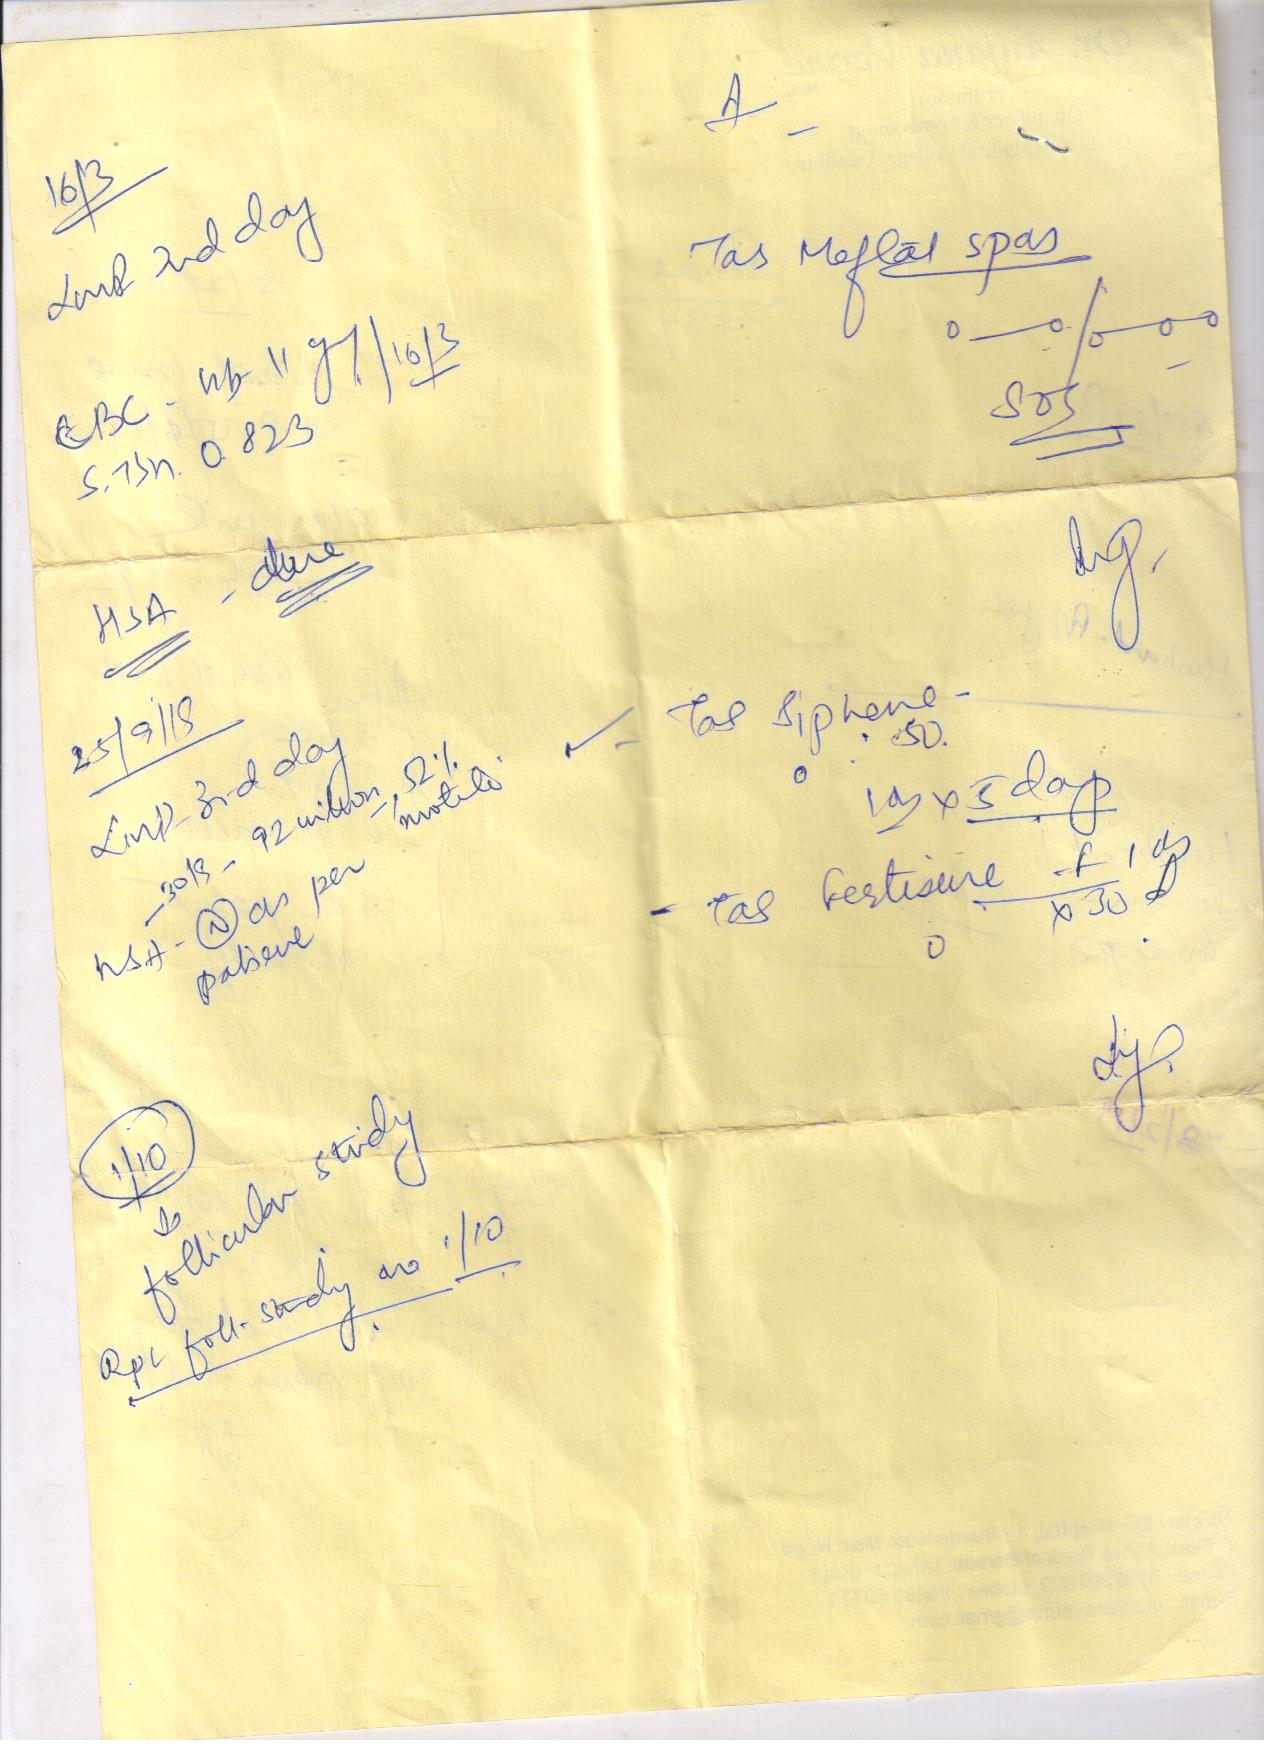 16/3
LMP 2nd day
CBC - Hb 11 g% / 16/3
S. TSH. 0.823
A -
Tab Meftal spas
0 — 0 / 0 — 0 — 0
SOS
HSA - done
25/9/18
LMP 3rd day
- 2018 - 92 million, 52% motile
HSA - (N) as per
patient
✓ - Tab Siphene -
50.
0
1 x 5 days
- Tab Fertisure F 1
x 30 d
0
1/10
↓
follicular study
Rpt foll. study on 1/10